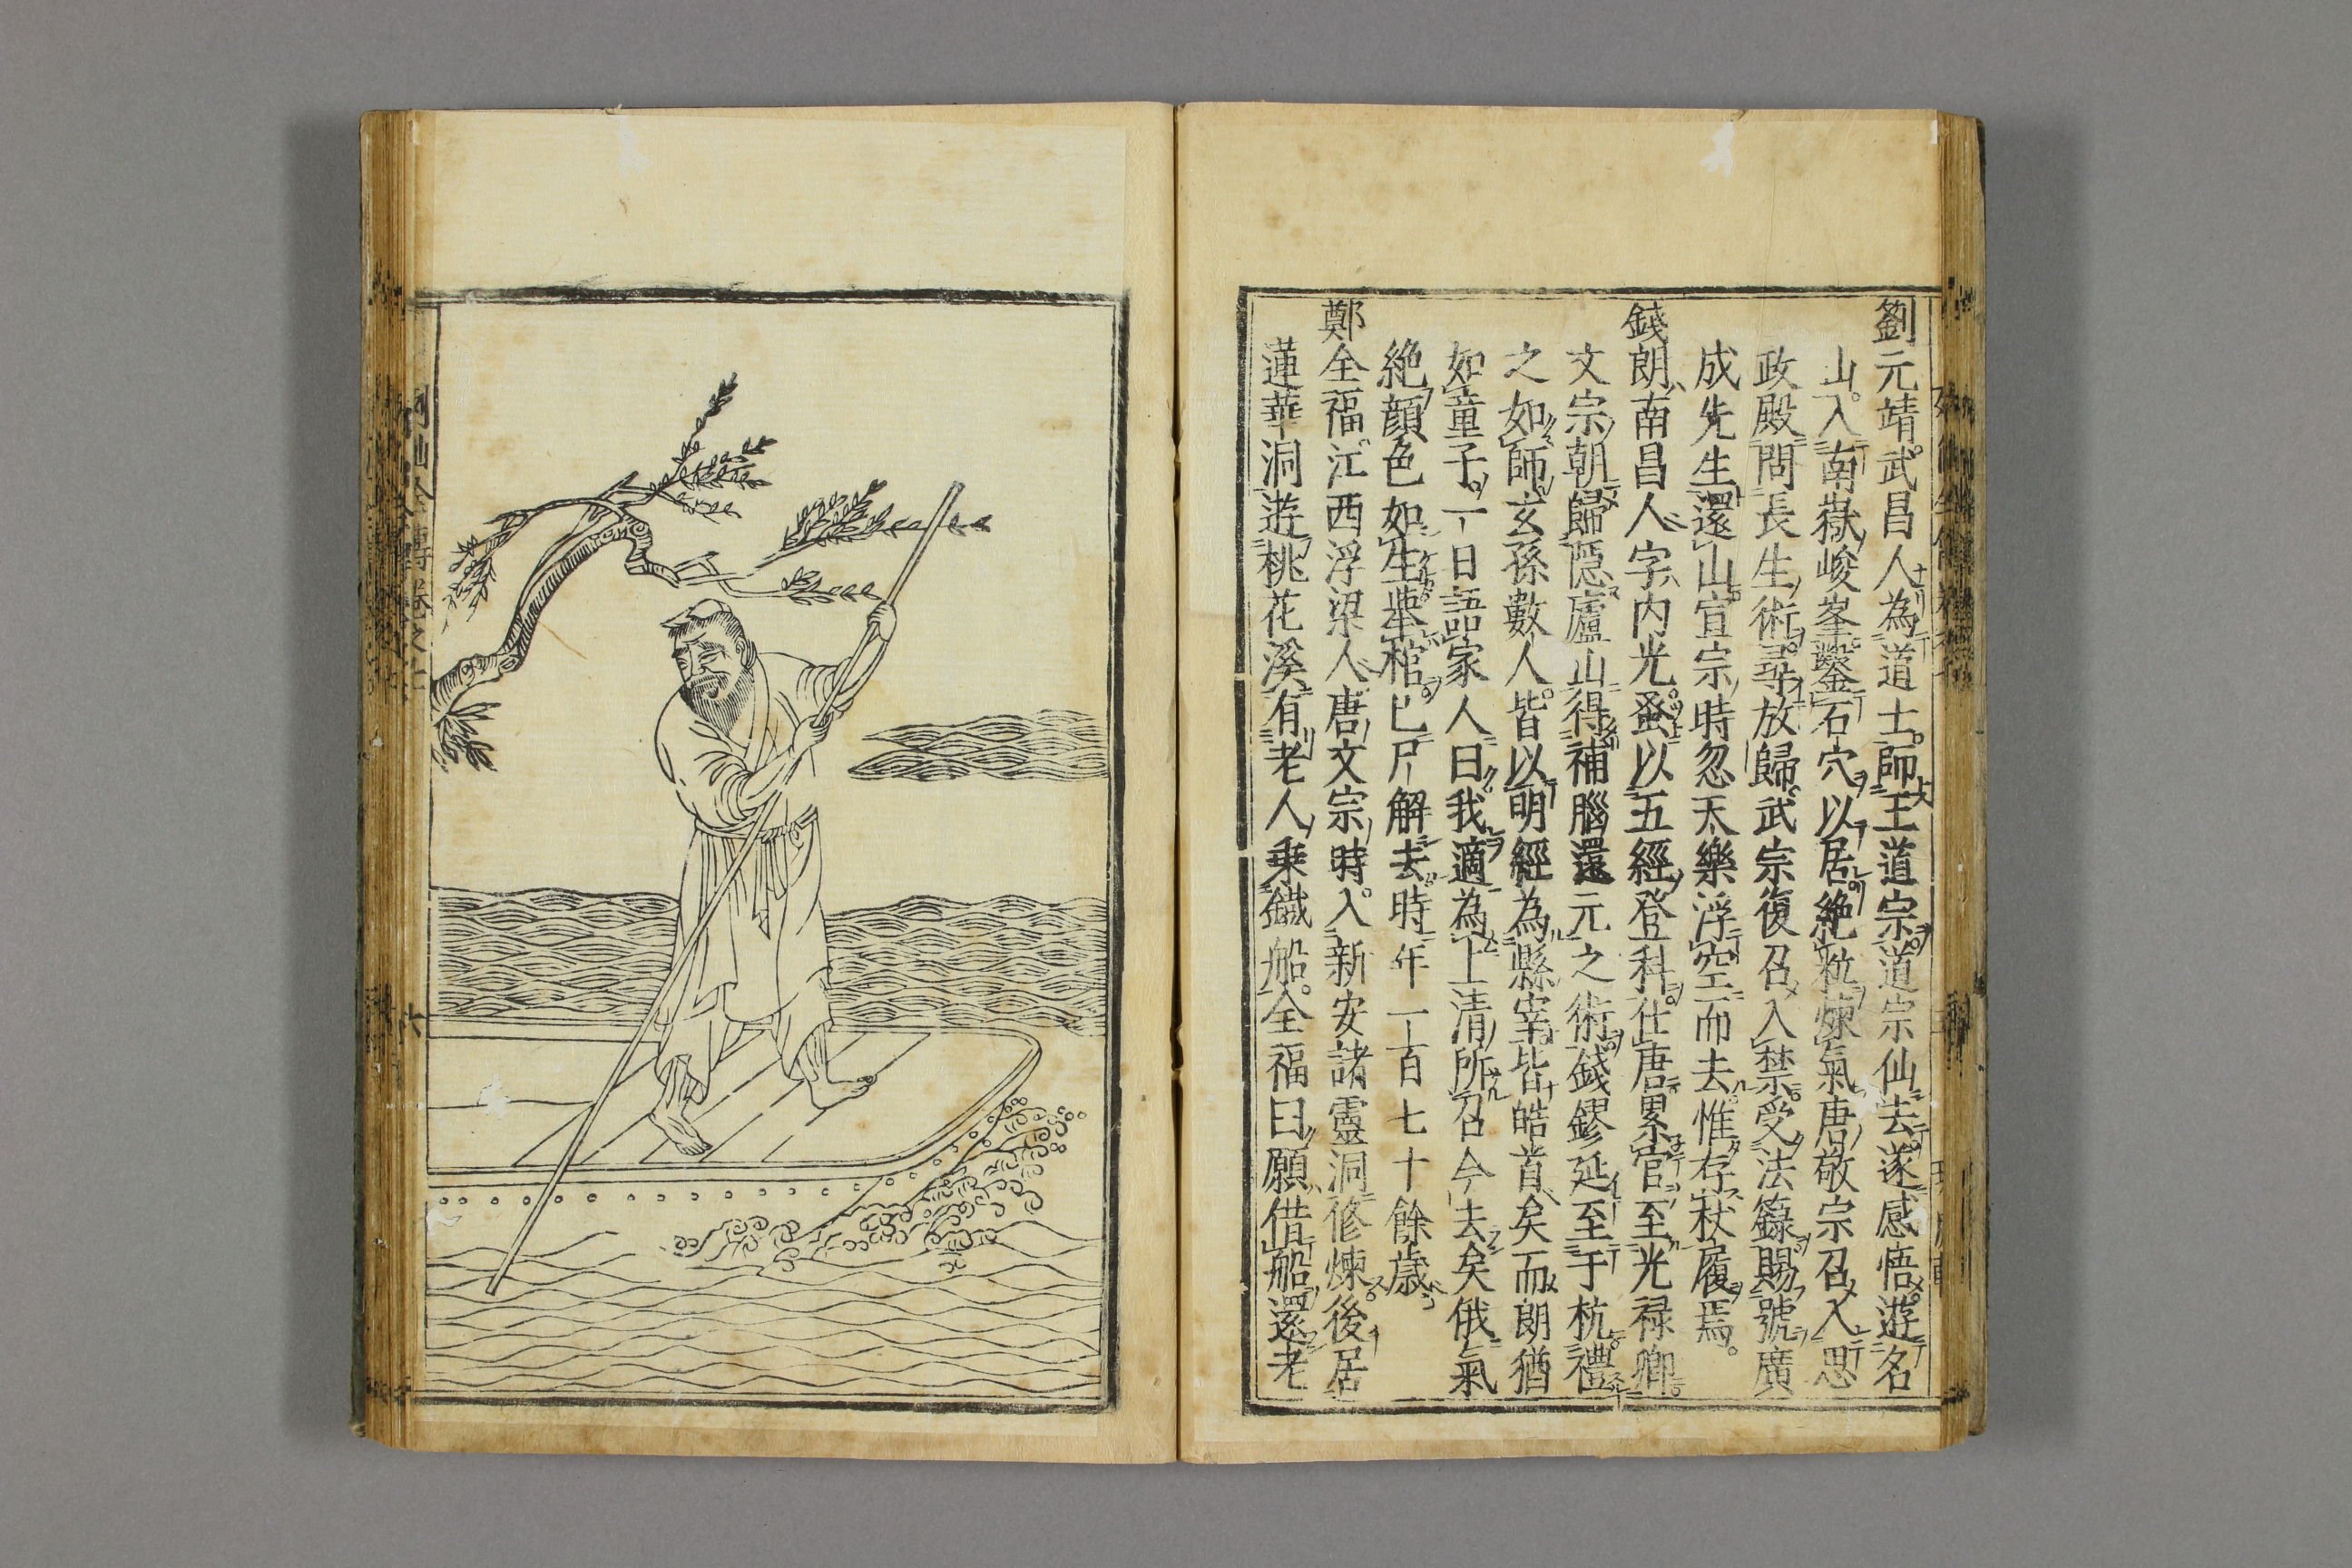 劉元靖。武昌人為道士。師王道宗。道宗仙去。遂感悟。遊名
山。入南嶽峻峯鑿石穴以居。絶粒煉氣。唐敬宗召入思
政殿問長生術。尋放歸。武宗復召入禁。受法籙賜號廣
成先生還山。宣宗時忽天樂浮空而去。惟存杖履焉。
錢朗南昌人字内光。蚤以五經登科。仕唐累官至光禄卿。
文宗朝歸隠廬山得補腦還元之術。錢鏐延至于杭。禮
之如師。玄孫數人。皆以明經為縣宰。皆皓首矣而朗猶
如童子。一日語家人曰我適為上清所召今去矣俄氣
絶顔色如生。舉棺。已尸解去。時年一百七十餘歳
鄭全福。江西浮梁人。唐文宗時。入新安諸靈洞修煉。後居
蓮華洞遊桃花溪有老人乗鐵船。全福曰願借船還老